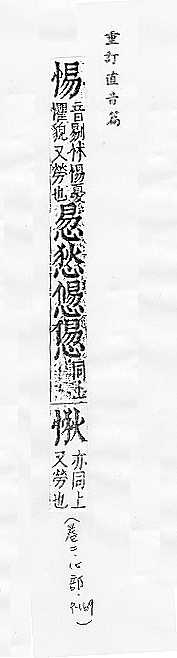 重訂直音篇
惕
音剔怵惕憂
懼貌又勞也
惖悐
同上
亦同上
又勞也
(卷二·心部·P-169)